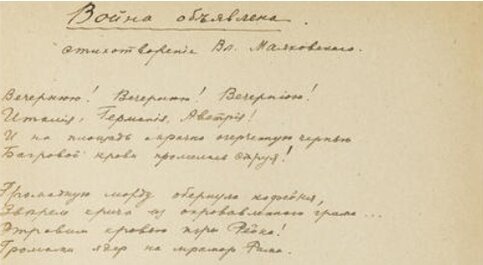 Война объявлена.
стихотвореніе Вл. Маяковскаго.
Вечернюю! Вечернюю! Вечернюю!
Италія, Германія, Австрія!
И на площадь мрачно очерченую чернью
Багровой крови пролилась струя!
морду
крича из окровавленного
Отравим кровью игры Рейна!
Громами ядер на мрамор Рима.